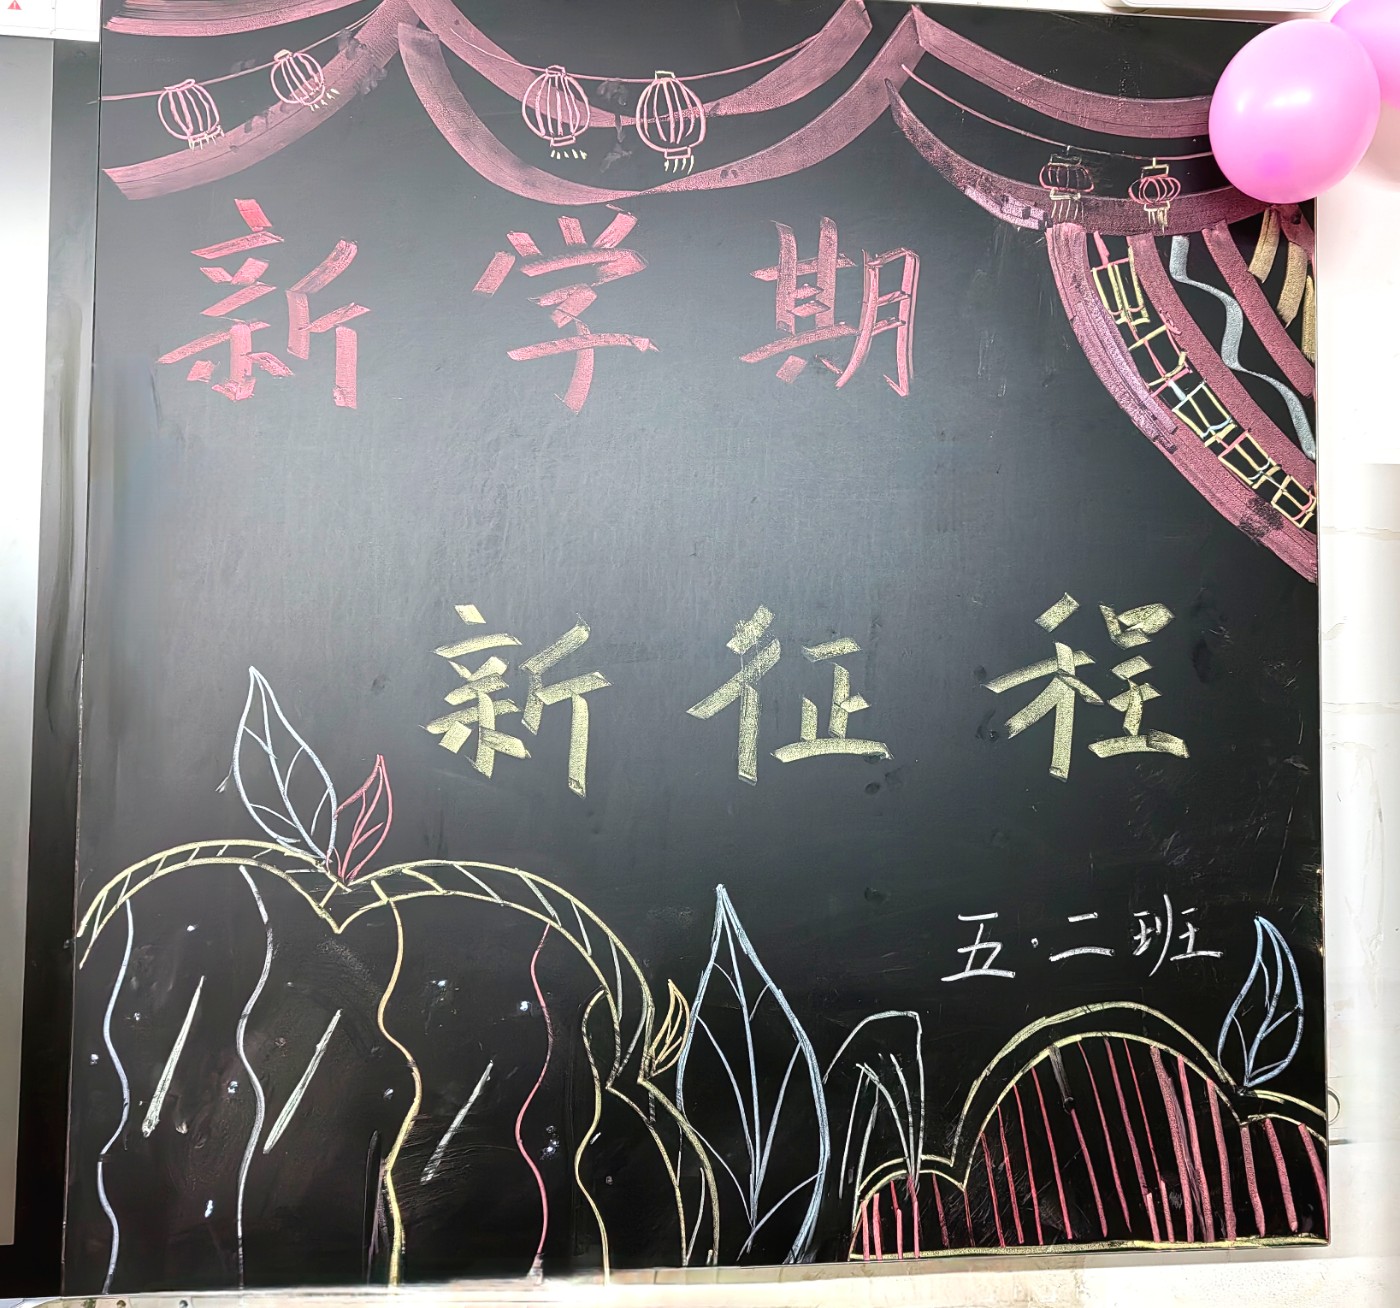 新学期
新征程
五·二班